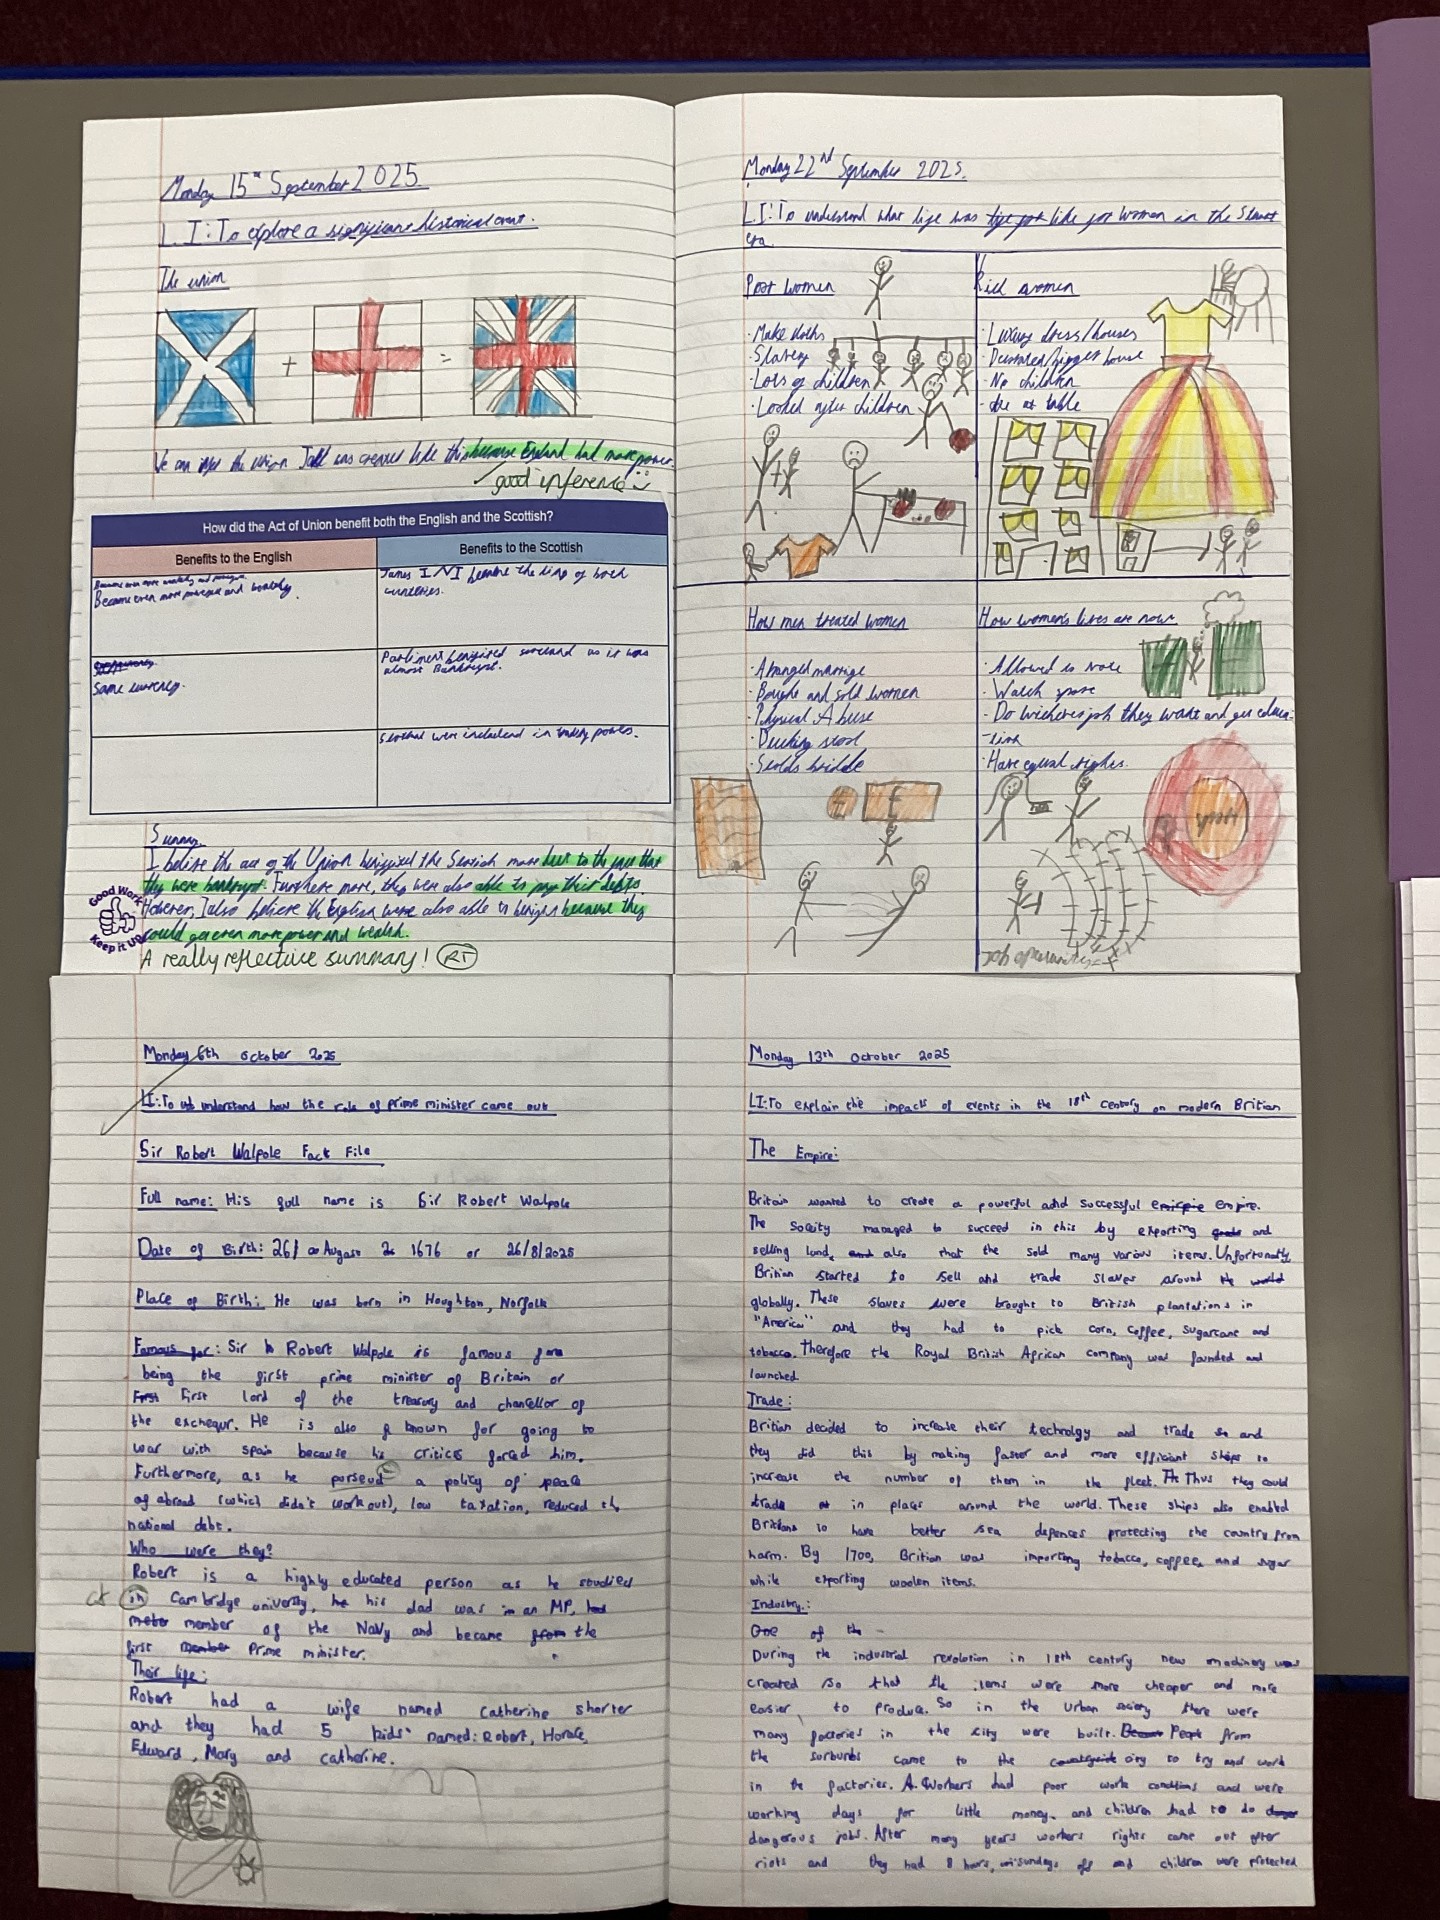 Monday 15th September 2025
L.I: To explore a significant historical event.
The union
+ =
We can infer the union Jack was created like this because England had more power.
✓ good inference
How did the Act of Union benefit both the English and the Scottish?
Benefits to the English
Benefits to the Scottish
Became even more wealthy and
Became even more powerful and wealthy.
James I / VI became the king of both
countries.
Same currency.
Parliment benifited scotland as it was
almost Bankrupt.
were included in trading powers.
Summary.
I belive the act of the Union benifited the Scotish more due to the fact that
they were bankrupt. Furthere more, they were also able to pay their debts.
However, I also believe the English were also able to benifit because they
could get even more power and wealth.
Good Work
Keep it Up
A really reflective summary! RT
Monday 22nd September 2025.
L.I: To understand what life was like for women in the Stuart
era.
Poor women
· Make cloths
· Slavery
· Lots of children
· Looked after children
Rich women
· Luxury dress/houses
· Decorated/bigger house
· No children
· at table
How men treated women
· Arranged marrige
· Bought and sold women
· Physical Abuse
· Ducking stool
· Scolds bridle
How women's lives are now
· Allowed to vote
· Watch
· Do job they want and get educa-
-tion
· Have equal rights.
Monday 6th october 2025
LI: To understand how the role of prime minister came out
Sir Robert Walpole Fact File
Full name: His full name is Sir Robert Walpole
Date of Birth: 26/ August 1676 or 26/8/2025
Place of Birth: He was born in Houghton, Norfolk
Famous for: Sir Robert Walpole is famous for
being the first prime minister of Britain or
First lord of the treasury and chancellor of
the exchequr. He is also known for going to
war with spain because his critics forced him.
Furthermore, as he purseud a policy of peace
of abroad (which didn't work out), low taxation, reduced th
national debt.
Who were they?
Robert is a highly educated person as he studied
at in Cambridge university, he his dad was in an MP, had
member of the Navy and became from the
first member Prime minister.
Their life:
Robert had a wife named Catherine shorter
and they had 5 kids named: Robert, Horace,
Edward, Mary and catherine.
Monday 13th October 2025
LI: To explain the impacts of events in the 18th Century on modern Britian
The Empire:
Britain wanted to create a powerful and successful empire.
The Socity managed to succeed in this by exporting goods and
selling land, and also that the sold many various items. Unfortunatly
Britian started to sell and trade slaves around the world
globally. These slaves were brought to British plantations in
"America" and they had to pick corn, coffee, sugarcane and
tobacco. Therefore the Royal British African company was founded and
launched
Trade:
Britian decided to increase their technolgy and trade so and
they did this by making faster and more efficiant ships to
increase the number of them in the fleet. Thus they could
trade in placs around the world. These ships also enabled
Britians to have better sea defences protecting the country from
harm. By 1700, Britian was importing tobacco, coffee, and sugar
while exporting woolen items.
Industry.:
One of th -
During the industrial revolution in 18th century new machinery was
created so that the items were more cheaper and more
easier, to produce. So in the urban society there were
many factories in the city were built. People from
the surburbs came to the countryside city to try and work
in the factories. A. Workers had poor work conditions and were
working days for little money. and children had to do danger
dangerous jobs. After many years workers rights came out after
riots and they had 8 hours, sundays off and children were protected